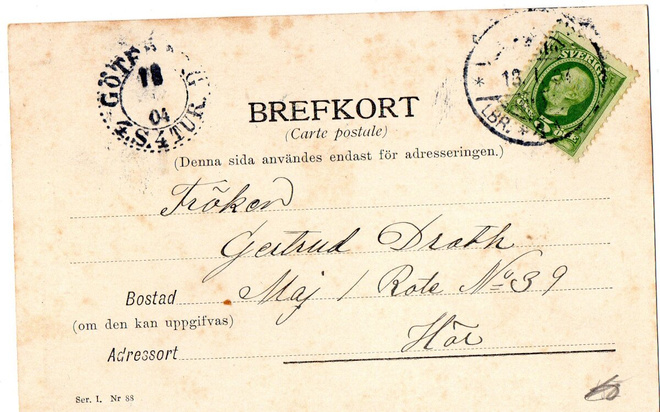 GÖTEBORG
18
04
4.S.4 TUR.
18
LBR.
SVERIGE
5
BREFKORT
(Carte postale)
(Denna sida användes endast för adresseringen.)
Fröken
Gertrud Drath
Bostad Maj / Rote No 39
(om den kan uppgifvas)
Adressort Här
Ser. I. Nr 88